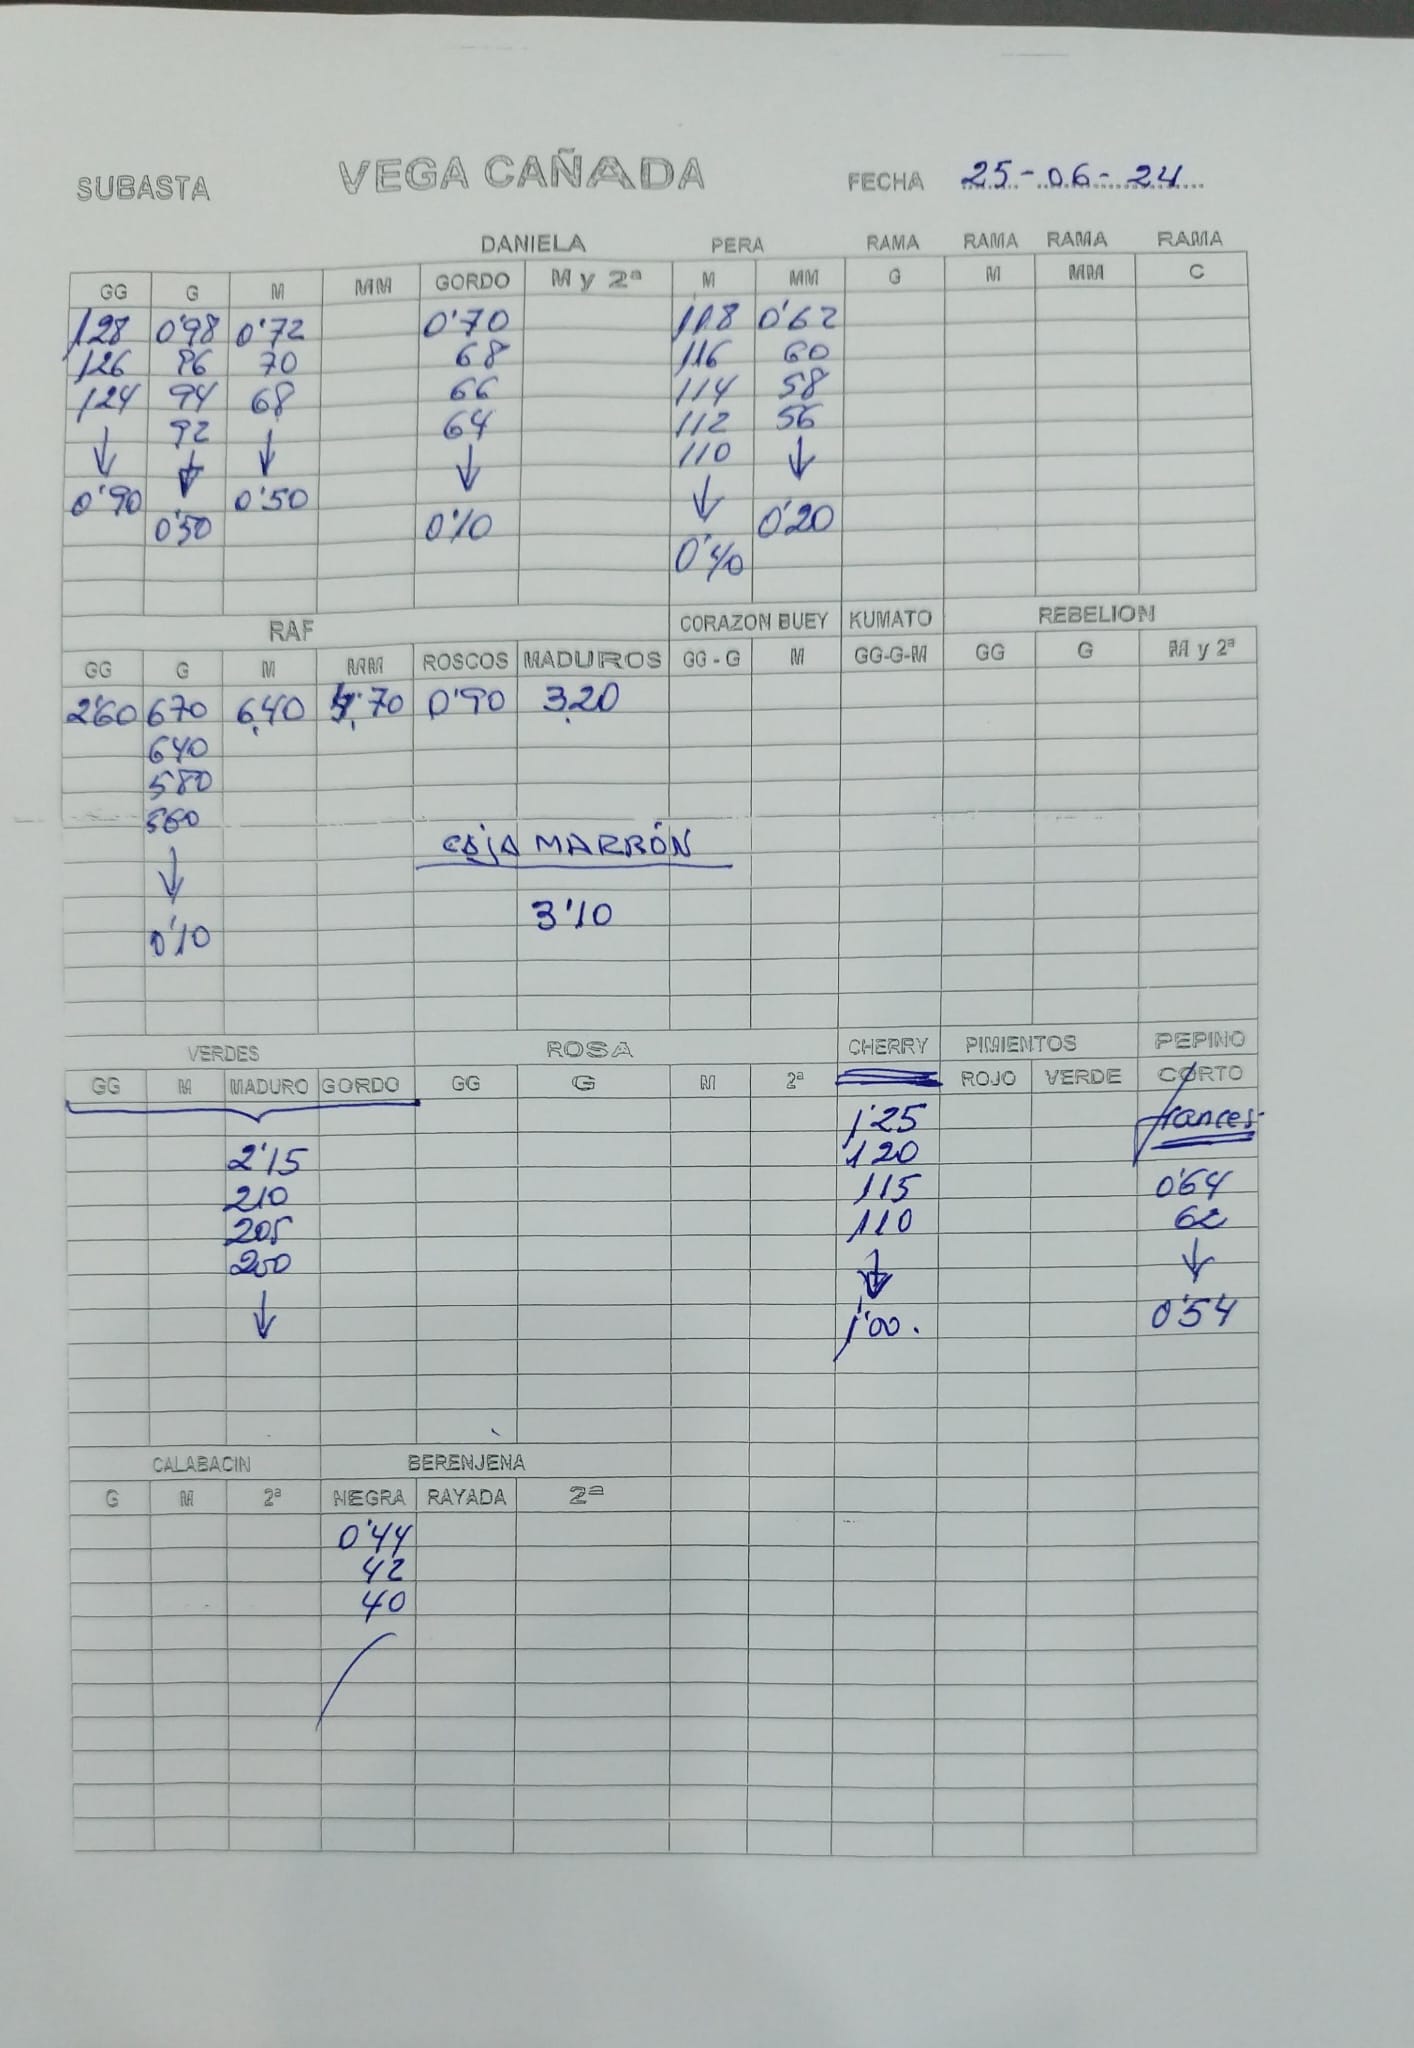 SUBASTA VEGA CAÑADA FECHA 25-06-24
DANIELA PERA RAMA RAMA RAMA RAMA
GG G M MM GORDO M y 2ª M MM G M MM C
128 0'98 0'72 0'70 118 0'62
126 96 70 68 116 60
124 94 68 66 114 58
↓ 92 ↓ 64 112 56
0'90 ↓ 0'50 ↓ 110 ↓
0'50 0'10 ↓ 0'20
0'40
RAF CORAZON BUEY KUMATO REBELION
GG G M MM ROSCOS MADUROS GG - G M GG-G-M GG G M y 2ª
2'60 670 6,40 4,70 0'90 3,20
640
580
560
CAJA MARRÓN
↓
3'10
0'10
VERDES ROSA CHERRY PIMIENTOS PEPINO
GG M MADURO GORDO GG G M 2ª ROJO VERDE CORTO
1'25 frances
2'15 120
210 115 0'64
205 110 62
200 ↓ ↓
↓ 1'00. 0'54
CALABACIN BERENJENA
G M 2ª NEGRA RAYADA 2ª
0'44
42
40